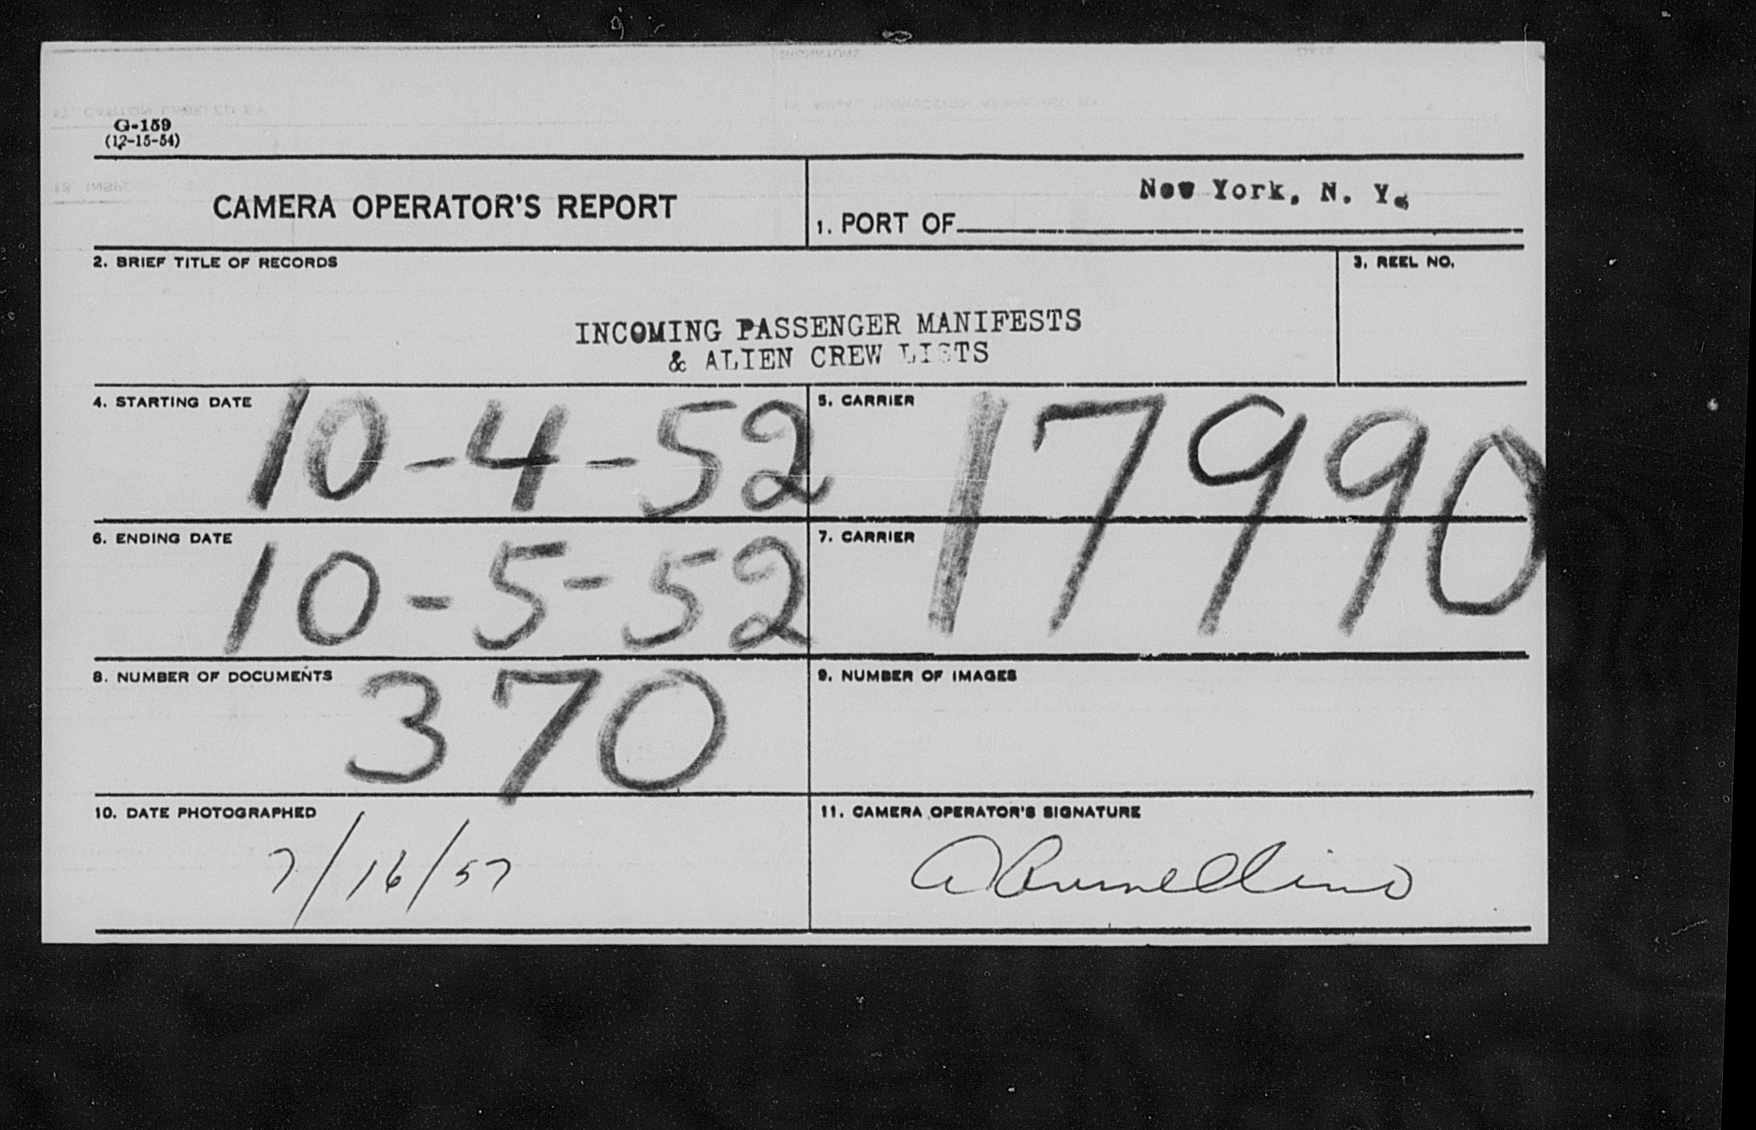 G-159
(12-15-54)
CAMERA OPERATOR'S REPORT
1. PORT OF New York, N. Y.
2. BRIEF TITLE OF RECORDS
3. REEL NO.
INCOMING PASSENGER MANIFESTS
& ALIEN CREW LISTS
4. STARTING DATE 10-4-52
5. CARRIER 17990
6. ENDING DATE 10-5-52
7. CARRIER
8. NUMBER OF DOCUMENTS 370
9. NUMBER OF IMAGES
10. DATE PHOTOGRAPHED
11. CAMERA OPERATOR'S SIGNATURE
7/16/57